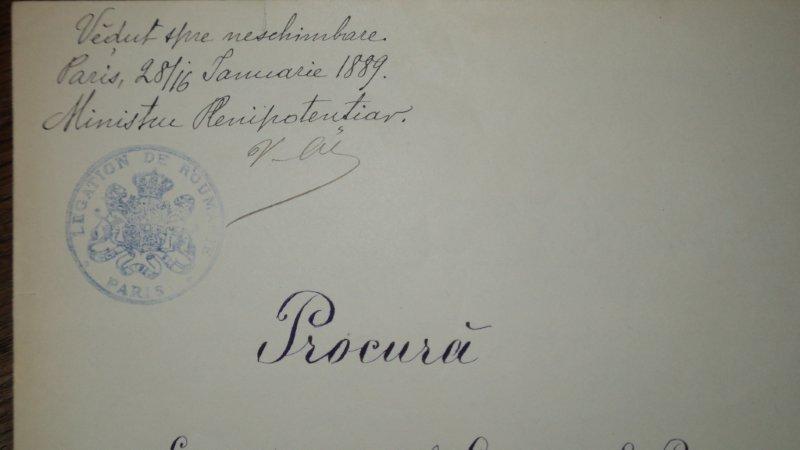 Vĕdut spre neschimbare.
Paris, 28/16 Ianuarie 1889.
Ministru Plenipotentiar.
V. Al
LEGATION DE ROUMANIE
PARIS
Procură